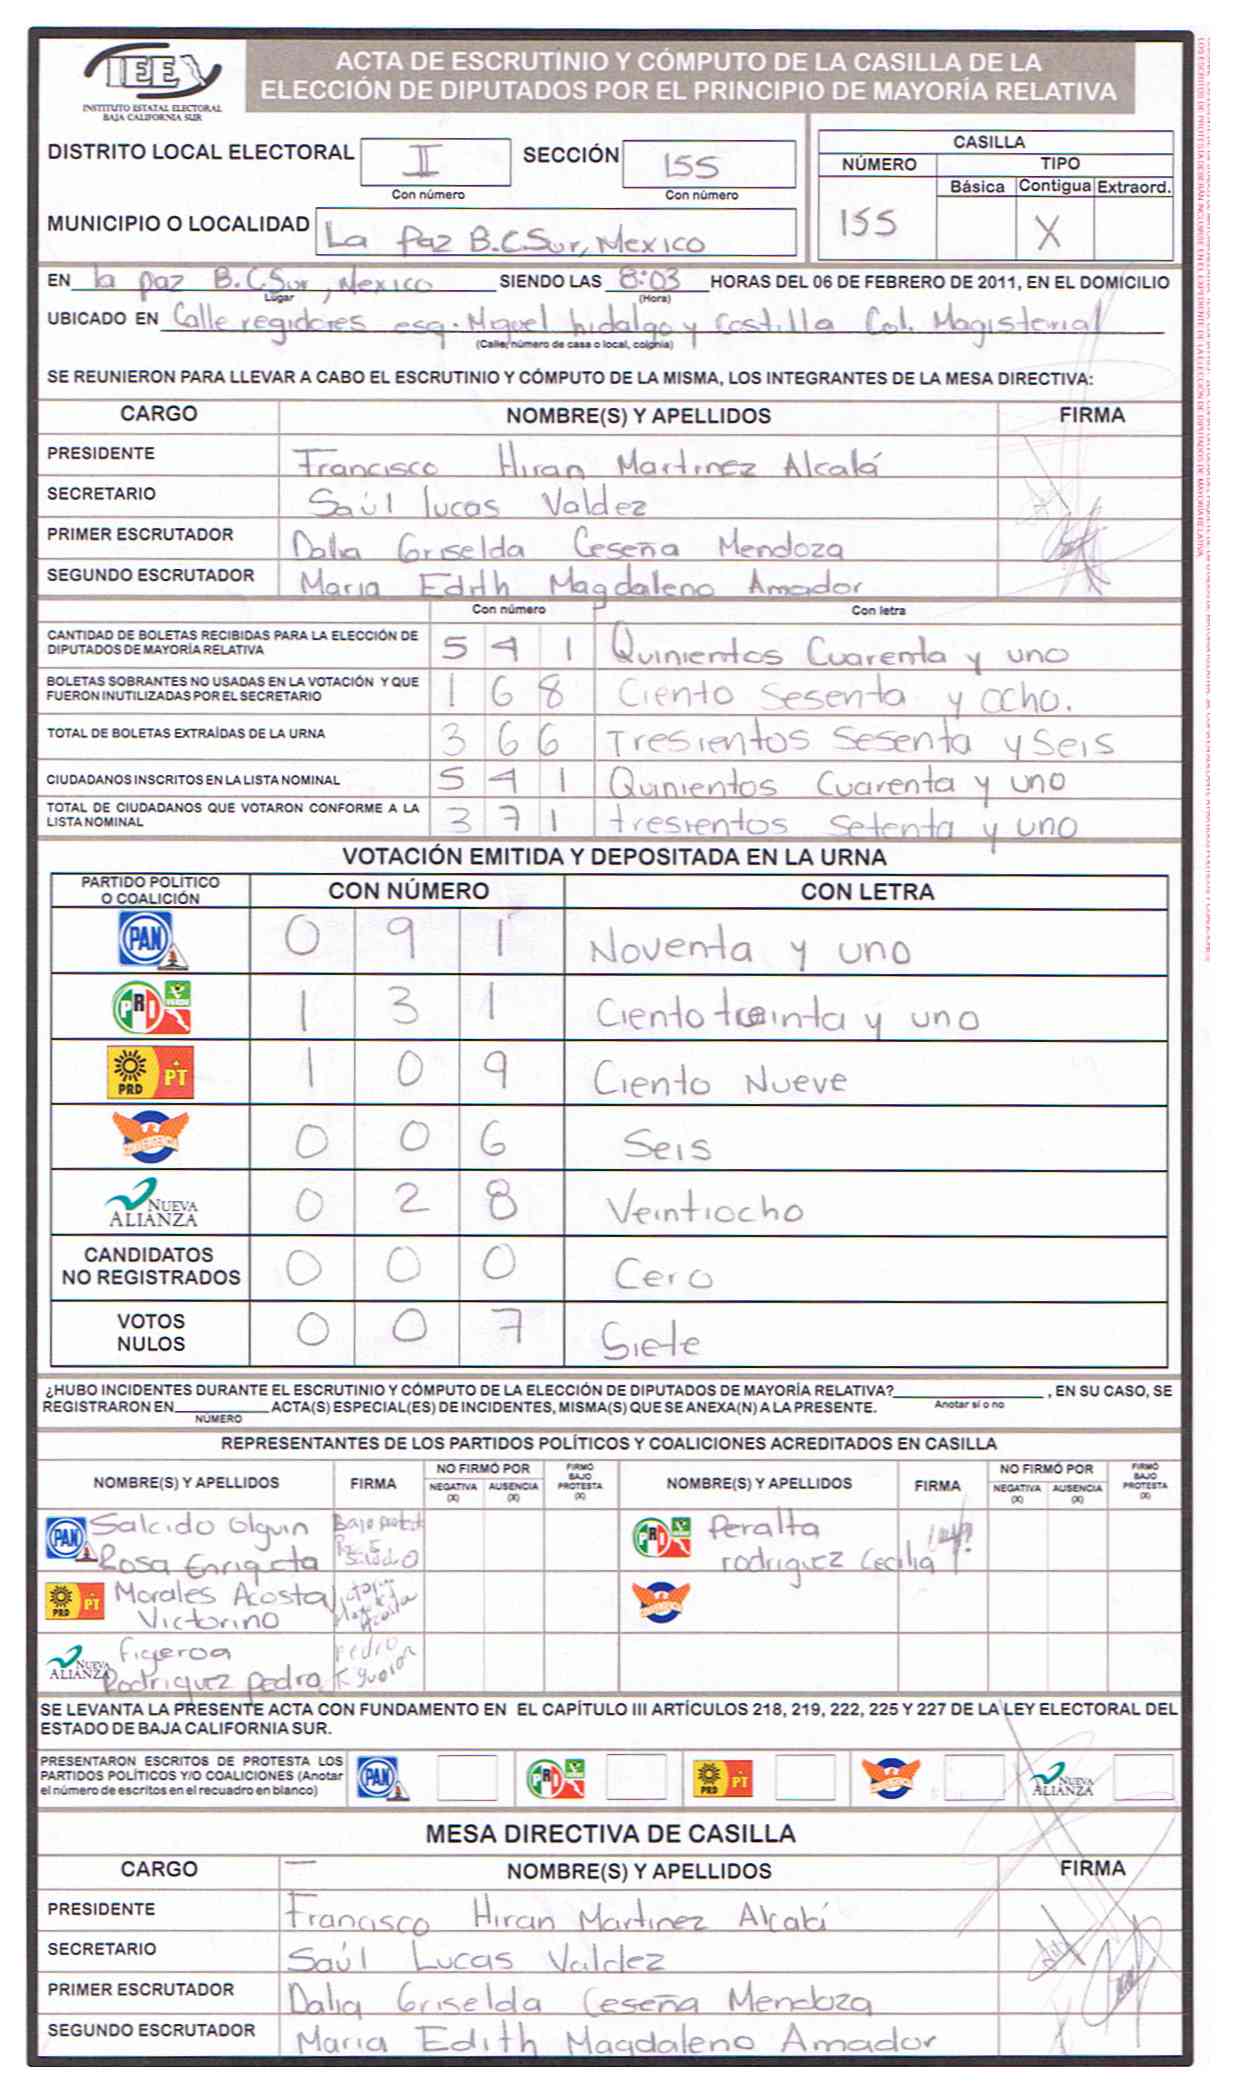 IEE
INSTITUTO ESTATAL ELECTORAL
BAJA CALIFORNIA SUR
ACTA DE ESCRUTINIO Y CÓMPUTO DE LA CASILLA DE LA
ELECCIÓN DE DIPUTADOS POR EL PRINCIPIO DE MAYORÍA RELATIVA
DISTRITO LOCAL ELECTORAL II SECCIÓN 155
Con número Con número
MUNICIPIO O LOCALIDAD La Paz B.C.Sur, Mexico
CASILLA
NÚMERO TIPO
Básica Contigua Extraord.
155 X
EN la paz B.C.Sur, Mexico SIENDO LAS 8:03 HORAS DEL 06 DE FEBRERO DE 2011, EN EL DOMICILIO
Lugar (Hora)
UBICADO EN Calle regidores esq. Miguel hidalgo y Costilla Col. Magisterial
(Calle, número de casa o local, colonia)
SE REUNIERON PARA LLEVAR A CABO EL ESCRUTINIO Y CÓMPUTO DE LA MISMA, LOS INTEGRANTES DE LA MESA DIRECTIVA:
CARGO NOMBRE(S) Y APELLIDOS FIRMA
PRESIDENTE Francisco Hiran Martinez Alcalá
SECRETARIO Saúl lucas Valdez
PRIMER ESCRUTADOR Dalia Griselda Ceseña Mendoza
SEGUNDO ESCRUTADOR Maria Edith Magdaleno Amador
Con número Con letra
CANTIDAD DE BOLETAS RECIBIDAS PARA LA ELECCIÓN DE
DIPUTADOS DE MAYORÍA RELATIVA 5 4 1 Quinientos Cuarenta y uno
BOLETAS SOBRANTES NO USADAS EN LA VOTACIÓN Y QUE
FUERON INUTILIZADAS POR EL SECRETARIO 1 6 8 Ciento Sesenta y ocho.
TOTAL DE BOLETAS EXTRAÍDAS DE LA URNA 3 6 6 Tresientos Sesenta y Seis
CIUDADANOS INSCRITOS EN LA LISTA NOMINAL 5 4 1 Quinientos Cuarenta y uno
TOTAL DE CIUDADANOS QUE VOTARON CONFORME A LA
LISTA NOMINAL 3 7 1 tresientos Setenta y uno
VOTACIÓN EMITIDA Y DEPOSITADA EN LA URNA
PARTIDO POLÍTICO
O COALICIÓN CON NÚMERO CON LETRA
PAN 0 9 1 Noventa y uno
PRI VERDE 1 3 1 Ciento treinta y uno
PRD PT 1 0 9 Ciento Nueve
CONVERGENCIA 0 0 6 Seis
NUEVA ALIANZA 0 2 8 Veintiocho
CANDIDATOS
NO REGISTRADOS 0 0 0 Cero
VOTOS
NULOS 0 0 7 Siete
¿HUBO INCIDENTES DURANTE EL ESCRUTINIO Y CÓMPUTO DE LA ELECCIÓN DE DIPUTADOS DE MAYORÍA RELATIVA? , EN SU CASO, SE
Anotar sí o no
REGISTRARON EN ACTA(S) ESPECIAL(ES) DE INCIDENTES, MISMA(S) QUE SE ANEXA(N) A LA PRESENTE.
NÚMERO
REPRESENTANTES DE LOS PARTIDOS POLÍTICOS Y COALICIONES ACREDITADOS EN CASILLA
NOMBRE(S) Y APELLIDOS FIRMA NO FIRMÓ POR NEGATIVA (X) AUSENCIA (X) FIRMÓ BAJO PROTESTA (X) NOMBRE(S) Y APELLIDOS FIRMA NO FIRMÓ POR NEGATIVA (X) AUSENCIA (X) FIRMÓ BAJO PROTESTA (X)
PAN Salcido Olguin Bajo PRI VERDE Peralta
Rosa Enriqueta Salcido O rodriguez Cecilia
PRD PT Morales Acosta CONVERGENCIA
Victorino
NUEVA ALIANZA Figeroa Pedro
Rodriguez pedro
SE LEVANTA LA PRESENTE ACTA CON FUNDAMENTO EN EL CAPÍTULO III ARTÍCULOS 218, 219, 222, 225 Y 227 DE LA LEY ELECTORAL DEL
ESTADO DE BAJA CALIFORNIA SUR.
PRESENTARON ESCRITOS DE PROTESTA LOS
PARTIDOS POLÍTICOS Y/O COALICIONES (Anotar
el número de escritos en el recuadro en blanco)
PAN PRI VERDE PRD PT CONVERGENCIA NUEVA ALIANZA
MESA DIRECTIVA DE CASILLA
CARGO NOMBRE(S) Y APELLIDOS FIRMA
PRESIDENTE Francisco Hiran Martinez Alcalá
SECRETARIO Saúl Lucas Valdez
PRIMER ESCRUTADOR Dalia Griselda Ceseña Mendoza
SEGUNDO ESCRUTADOR Maria Edith Magdaleno Amador